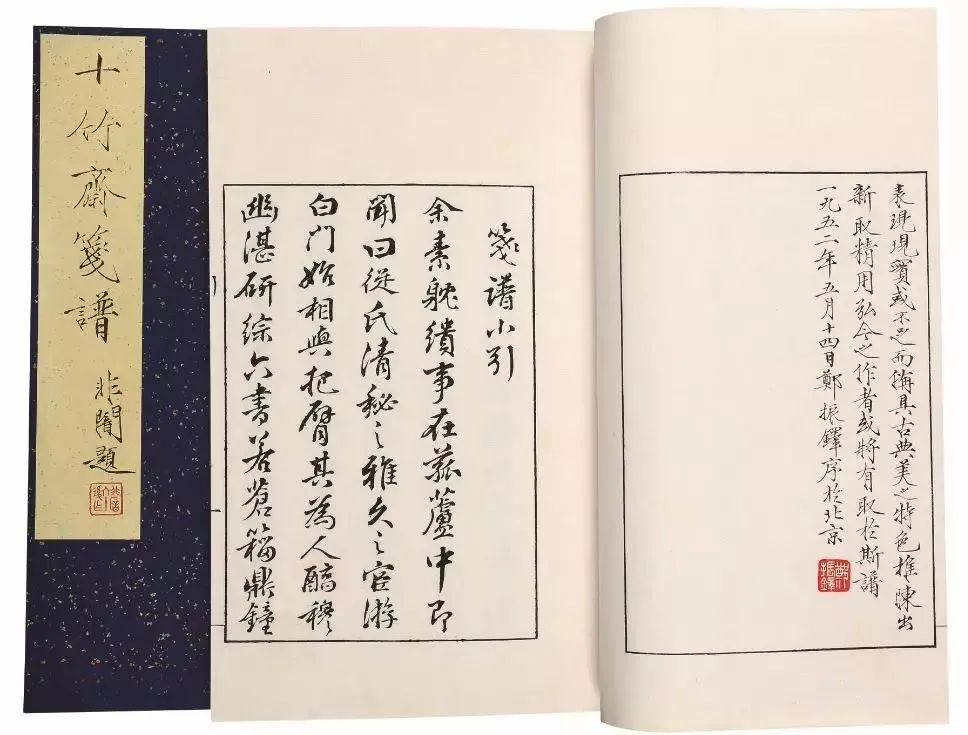 十竹齋箋譜
非闇題
表現現實或不足而備具古典美之特色推陳出
新取精用弘今之作者或將有取於斯譜
一九五二年五月十四日鄭振鐸序於北京
鄭振鐸
箋譜小引
余素躭繢事在菰蘆中即
聞曰從氏清秘之雅久之宦游
白门始相與把臂其為人醕穆
幽湛研綜六書若蒼籀鼎鐘